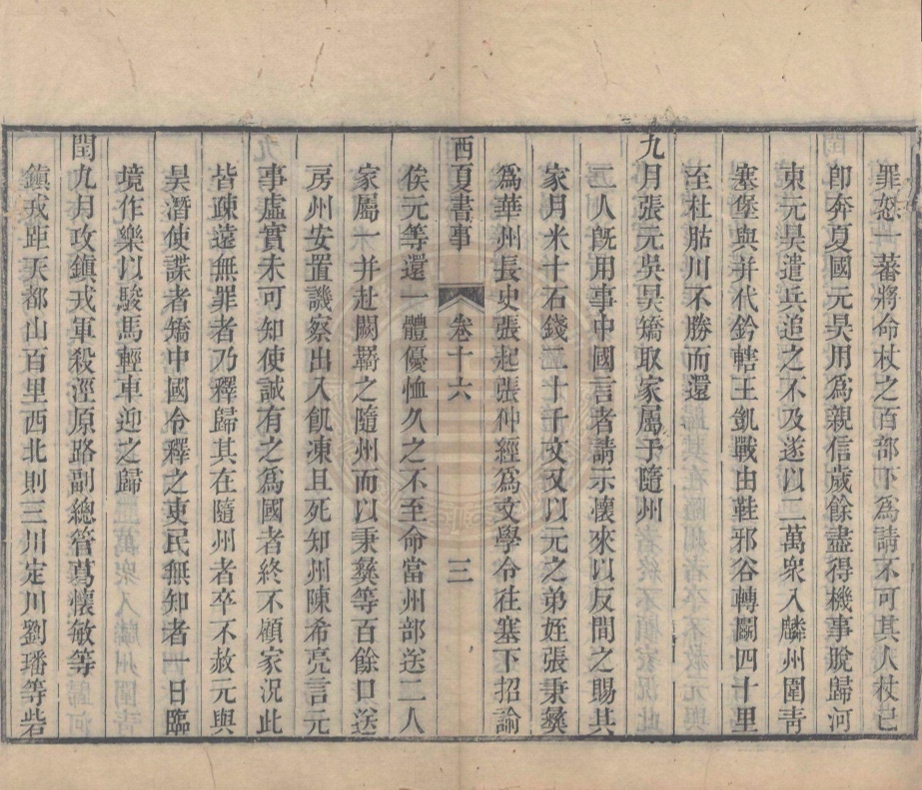 罪恕一蕃將命杖之百部下爲請不可其人杖已
卽奔夏國元昊用爲親信歲餘盡得機事脫歸河
東元昊遣兵追之不及遂以二萬衆入麟州圍靑
塞堡與并代鈐轄王凱戰由鞋邪谷轉鬭四十里
至杜肦川不勝而還
九月張元吳昊矯取家屬于隨州
二人旣用事中國言者請示懷來以反間之賜其
家月米十石錢二十千文又以元之弟姪張秉彝
爲華州長史張起張仲經爲文學令往塞下招諭
西夏書事 卷十六 三
俟元等還一體優恤久之不至命當州部送二人
家屬一并赴闕羈之隨州而以秉彝等百餘口送
房州安置譏察出入飢凍且死知州陳希亮言元
事虛實未可知使誠有之爲國者終不顧家況此
皆疎遠無罪者乃釋歸其在隨州者卒不赦元與
昊潛使諜者矯中國令釋之吏民無知者一日臨
境作樂以駿馬輕車迎之歸
閏九月攻鎭戎軍殺涇原路副總管葛懷敏等
鎭戎距天都山百里西北則三川定川劉璠等砦